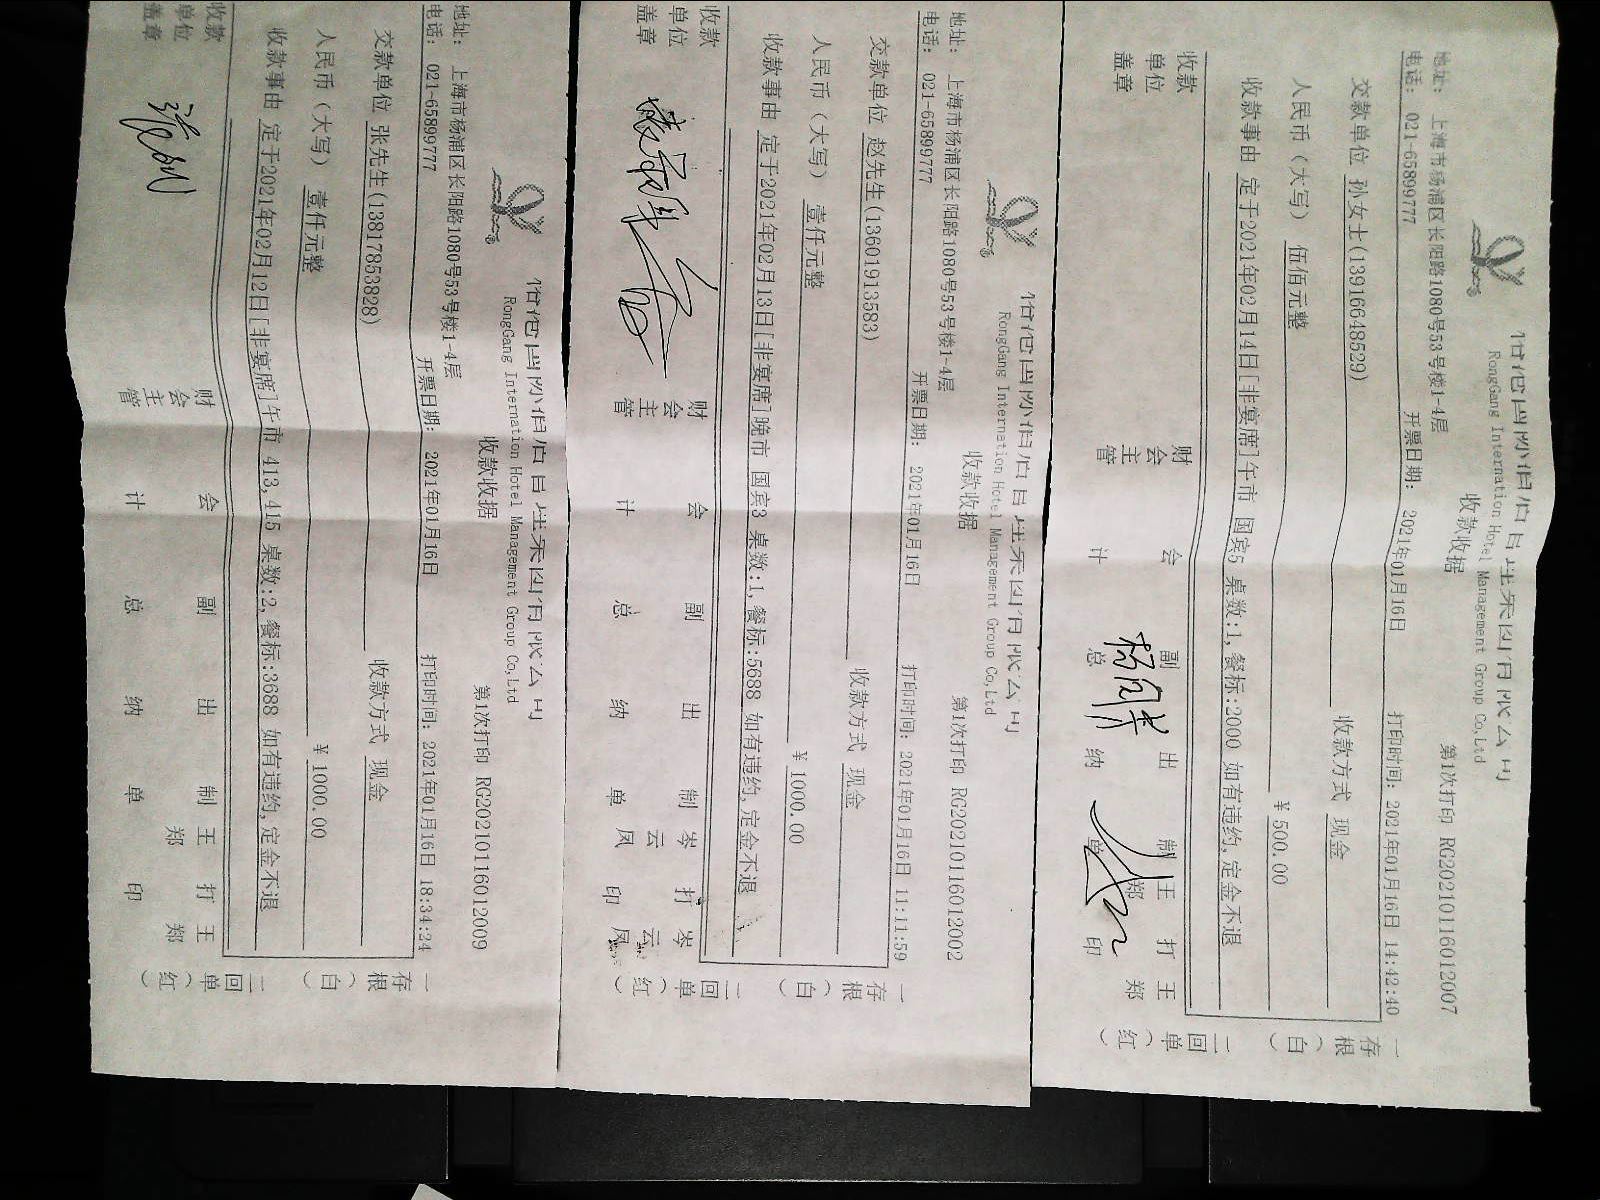 RongGang International Hotel Management Group Co,Ltd
收款收据
第1次打印 RG20210116012007
地址: 上海市杨浦区长阳路1080号53号楼1-4层
电话: 021-65899777 开票日期: 2021年01月16日 打印时间: 2021年01月16日 14:42:40
交款单位 孙女士(13916648529) 收款方式 现金
人民币(大写) 伍佰元整 ¥500.00
收款事由 定于2021年02月14日[非宴席]午市 国宾5 桌数:1,餐标:2000 如有违约,定金不退
收款单位盖章 财会主管 会计 副总 出纳 制单 王郑 打印 王郑
一存根(白) 二回单(红)
RongGang International Hotel Management Group Co,Ltd
收款收据
第1次打印 RG20210116012002
地址: 上海市杨浦区长阳路1080号53号楼1-4层
电话: 021-65899777 开票日期: 2021年01月16日 打印时间: 2021年01月16日 11:11:59
交款单位 赵先生(13601913583) 收款方式 现金
人民币(大写) 壹仟元整 ¥1000.00
收款事由 定于2021年02月13日[非宴席]晚市 国宾3 桌数:1,餐标:5688 如有违约,定金不退
收款单位盖章 财会主管 会计 副总 出纳 制单 岑云凤 打印 岑云凤
一存根(白) 二回单(红)
RongGang International Hotel Management Group Co,Ltd
收款收据
第1次打印 RG20210116012009
地址: 上海市杨浦区长阳路1080号53号楼1-4层
电话: 021-65899777 开票日期: 2021年01月16日 打印时间: 2021年01月16日 18:34:24
交款单位 张先生(13817853828) 收款方式 现金
人民币(大写) 壹仟元整 ¥1000.00
收款事由 定于2021年02月12日[非宴席]午市 413,415 桌数:2,餐标:3688 如有违约,定金不退
收款单位盖章 财会主管 会计 副总 出纳 制单 王郑 打印 王郑
一存根(白) 二回单(红)